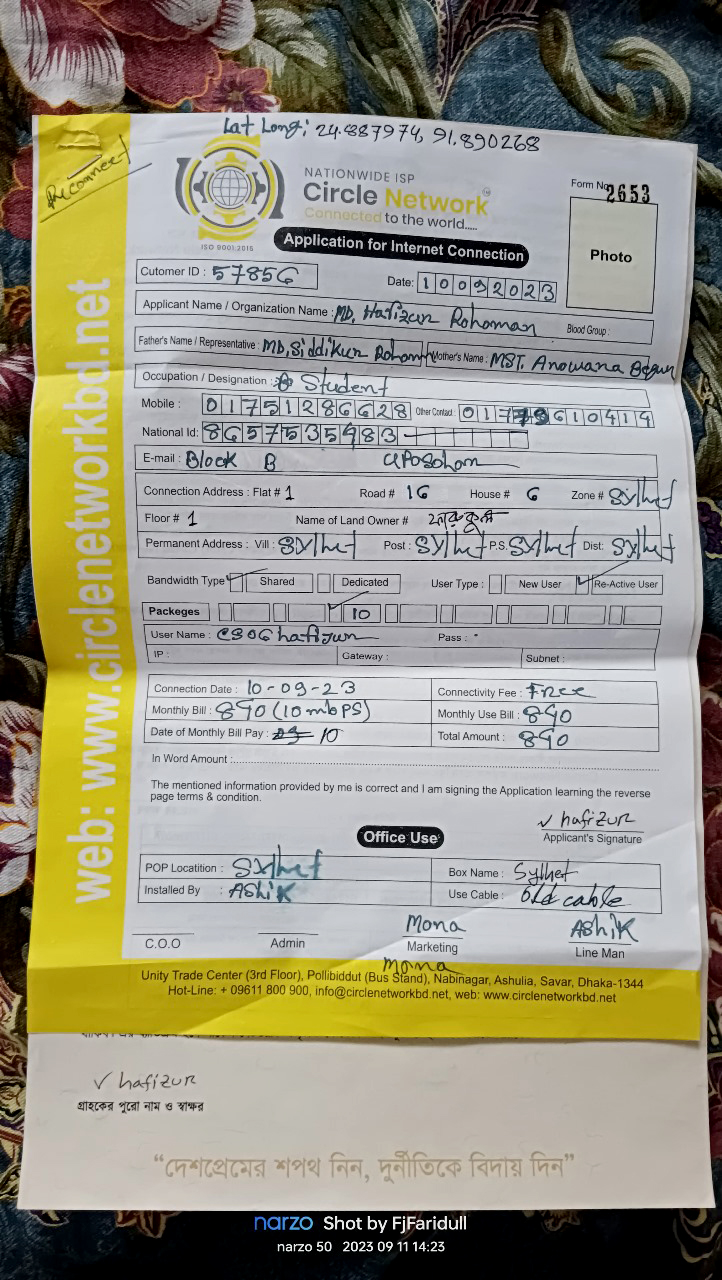 Lat Long: 24.887974, 91.890268
Reconnect
NATIONWIDE ISP
Circle Network
Connected to the world.....
ISO 9001:2015
Form No 2653
Application for Internet Connection
Photo
Cutomer ID : 57856 Date: 10092023
Applicant Name / Organization Name : MD. Hafizur Rohoman Blood Group :
Father's Name / Representative : MD, Siddikur Mother's Name : MST. Anowana Begun
Occupation / Designation : Student
Mobile : 01751286628 Other Contact :
National Id: 8657535983
E-mail : Block B uposohom
Connection Address : Flat # 1 Road # 16 House # 6 Zone # Sylhet
Floor # 1 Name of Land Owner #
Permanent Address : Vill : Sylhet Post : Sylhet P.S. Sylhet Dist: Sylhet
Bandwidth Type ✓ Shared Dedicated User Type : New User ✓ Re-Active User
Packeges ✓ 10
User Name : Pass :
IP : Gateway : Subnet :
Connection Date : 10-09-23 Connectivity Fee : Free
Monthly Bill : 840 (10 mbps) Monthly Use Bill : 840
Date of Monthly Bill Pay : 10 Total Amount : 840
In Word Amount :
The mentioned information provided by me is correct and I am signing the Application learning the reverse
page terms & condition.
✓ hafizur
Applicant's Signature
Office Use
POP Locatition : Sylhet Box Name : Sylhet
Installed By : AShiK Use Cable : old cable
Mona AShiK
C.O.O Admin Marketing Line Man
Mona
Unity Trade Center (3rd Floor), Pollibiddut (Bus Stand), Nabinagar, Ashulia, Savar, Dhaka-1344
Hot-Line: + 09611 800 900, info@circlenetworkbd.net, web: www.circlenetworkbd.net
web: www.circlenetworkbd.net
✓ hafizur
গ্রাহকের পুরো নাম ও স্বাক্ষর
“দেশপ্রেমের শপথ নিন, দুর্নীতিকে বিদায় দিন”
narzo Shot by FjFaridull
narzo 50 2023 09 11 14:23